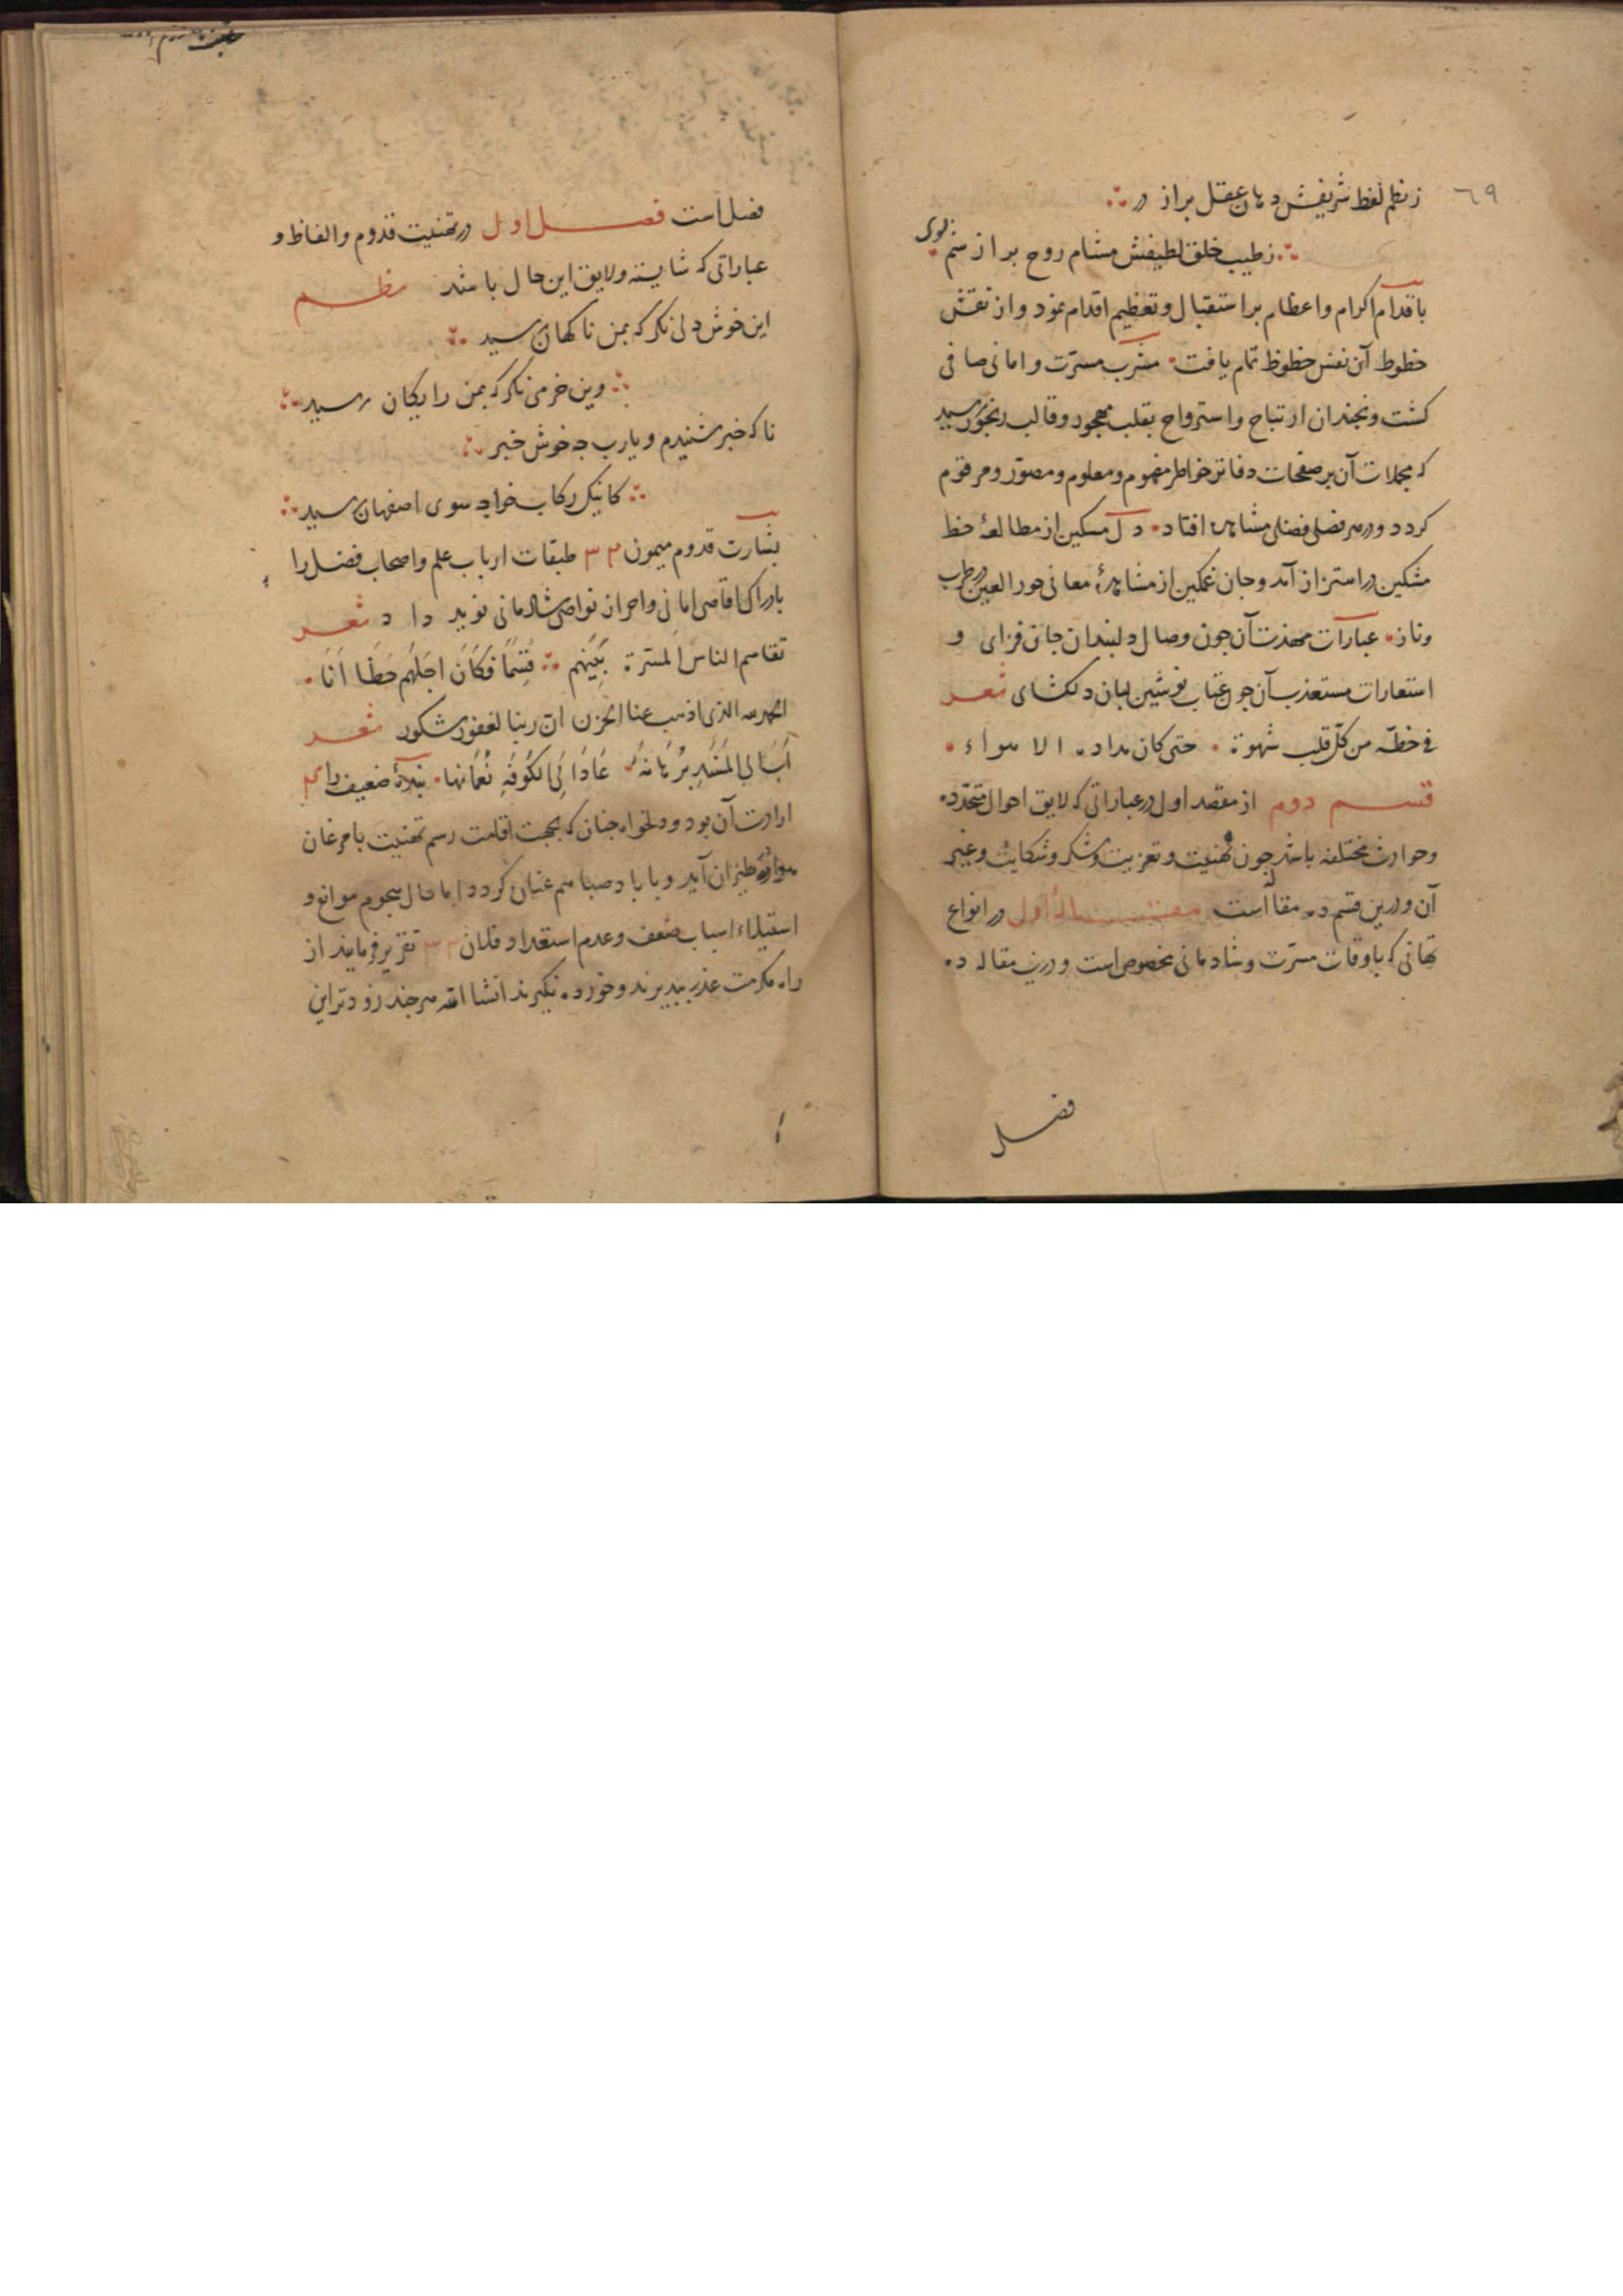 ٦٩
ز نظم لفظ شریفش دهان عقل براز در
ز طیب خلق لطیفش مشام روح براز شم بوی
باقدام اکرام واعظام براستقبال وتعظیم اقدام نمود واز نقش
خطوط آن نفس حظوظ تمام یافت مشرب مسرّت وامانی صافی
کشت وبجندان ارتباح واسترواح بقلب مهجور وقالب رنجور رسید
که مجملات آن بر صفحات دفاتر خواطر مفهوم ومعلوم ومصوّر ومرقوم
کردد ودر هر فصلی فضلی مشاهد افتاد دل مسکین از مطالعهٔ خط
مشکین در استزاز آمد وجان غمکین از مشاهدهٔ معانی حور العین در طرب
وناز عبارات مهذب آن جون وصال دلبندان جان فزای و
استعارات مستعذب آن جون عتاب نوشین لبان دلکشای شعر
فی خطّه من کلّ قلب شهوة حتی کان مداده الاهواء
قسم دوم از مقصد اول در عباراتی که لایق احوال متجدّده
وحوادث مختلفه باشد جون تهنیت وتعزیت وشکر وشکایت وغیر
آن ودرین قسم ده مقاله است مقالهٔ اول در انواع
تهانی که باوقات مسرّت وشادمانی مخصوص است ودرین مقاله ده
فصل
فصل است فصل اول در تهنیت قدوم والفاظ و
عباراتی که شایسته ولایق این حال باشد نظم
این خوش دلی نکر که بمن ناکهان رسید
وین خرمی نکر که بمن رایکان رسید
ناکه خبر شنیدم ویارب جه خوش خبر
کانیک رکاب خواجه سوی اصفهان رسید
بشارت قدوم میمون ٣٣ طبقات ارباب علم واصحاب فضل را
بادراک اقاصی امانی واحراز نواصی شادمانی نوید داد شعر
تقاسم الناس المسّرة بَینَهم قِسَمًا فَکَانَ اجَلَّهُم حَظًا اَنَا
الحمد لله الذی اذهب عنا الحزن ان ربنا لغفور شکور شعر
عَادَ اِلی الکُوفَةِ نُعْمَانها بندهٔ ضعیف را
ارادت آن بود ودلخواه جنان که بجهت اقامت رسم تهنیت با مرغان
هوا در طیران آید وبا باد صبا هم عنان کردد اما حال هجوم موانع و
استیلاء اسباب ضعف وعدم استعداد فلان ٣٣ تقریر فرمایند از
راه مکرمت عذر ببدیرند وخورده نکیرند انشا الله هر جند زودتر این